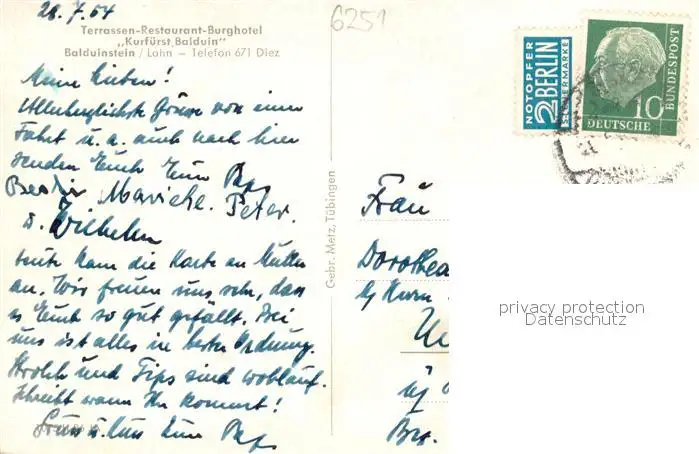 28.7.54
6251
Terrassen-Restaurant-Burghotel
„Kurfürst Balduin"
Balduinstein / Lahn — Telefon 671 Diez
Meine Lieben!
Allerherzlichste Grüsse von einer
Fahrt u. a. auch nach hier
senden Euch Eure
Marieke. Peter.
u. Wilhelm
heute kam die Karte an Mutter
an. Wir freuen uns sehr, dass
es Euch so gut gefällt. Bei
uns ist alles in bester Ordnung.
Strolch und Tips sind wohlauf.
Schreibt wann Ihr kommt!
Gruss u. Kuss Eure
Gebr. Metz, Tübingen
NOTOPFER
2 BERLIN
STEUERMARKE
10
DEUTSCHE
BUNDESPOST
Frau
Dorothea
privacy protection
Datenschutz